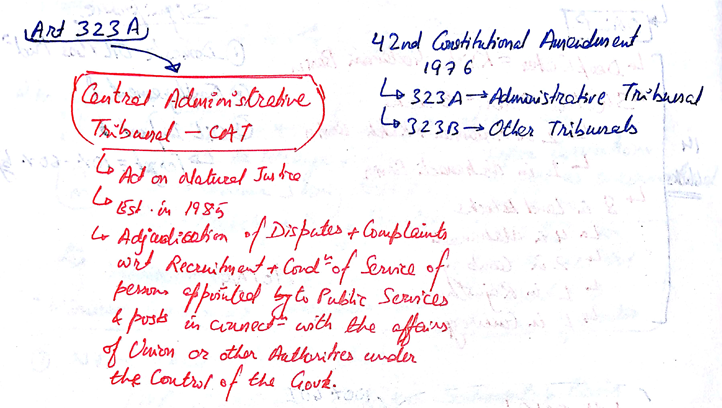 Art 323A
Central Administrative
Tribunal – CAT
↳ Act on Natural Justice
↳ Est. in 1985
↳ Adjudication of Disputes + Complaints
wrt Recruitment + Condⁿ of Service of
persons appointed by to Public Services
& posts in connectⁿ with the affairs
of Union or other Authorities under
the Control of the Govt.
42nd Constitutional Amendment
1976
↳ 323A → Administrative Tribunal
↳ 323B → Other Tribunals